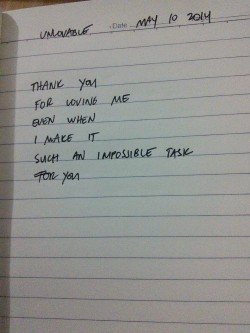 UNLOVABLE Date MAY 10 2014
THANK YOU
FOR LOVING ME
EVEN WHEN
I MAKE IT
SUCH AN IMPOSSIBLE TASK
FOR YOU